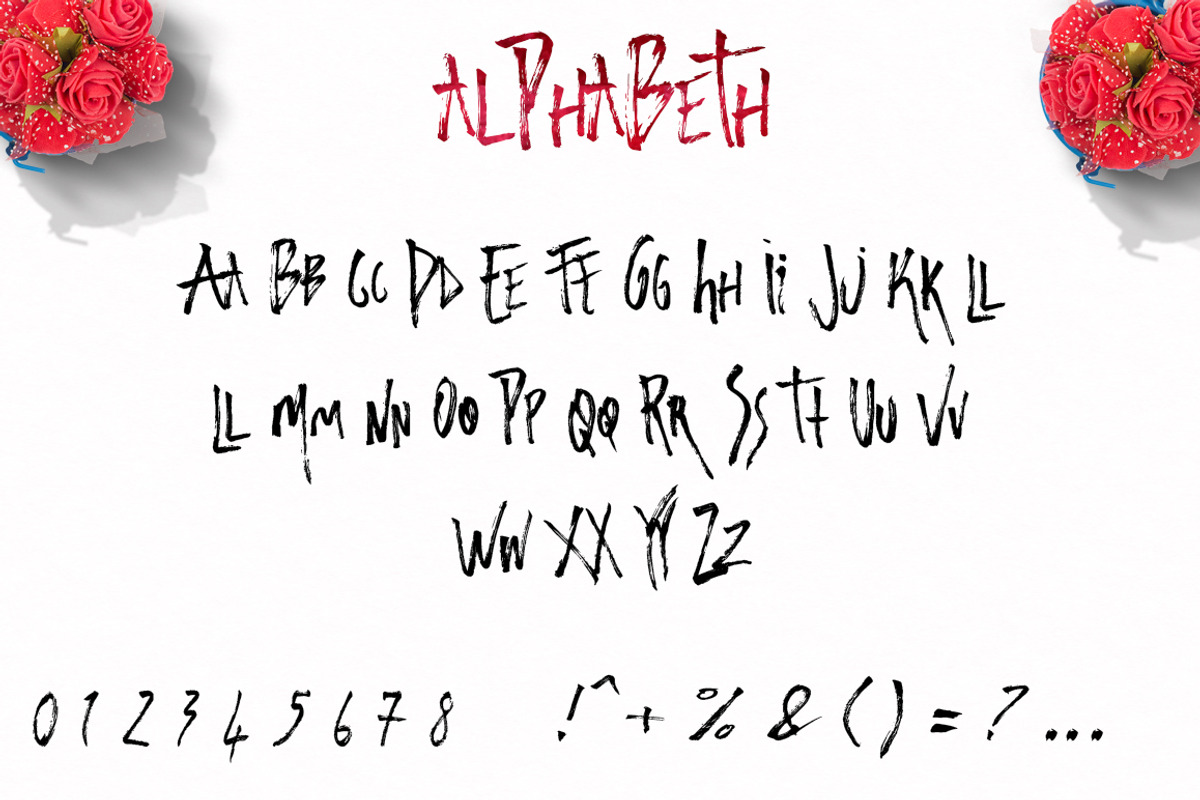 ALPHABETH
AA BB CC DD EE FF GG hH Ii JJ KK LL
LL MM NN OO PP QQ RR SS TT UU VV
WW XX YY ZZ
0 1 2 3 4 5 6 7 8 ! ^ + % & ( ) = ? ...